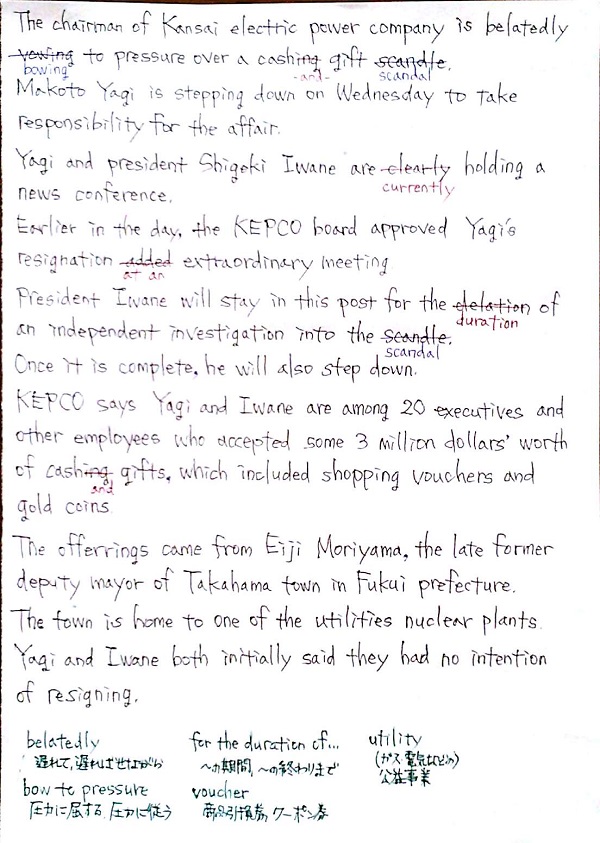 The chairman of Kansai electric power company is belatedly
vowing to pressure over a cashing gift scandle.
bowing -and- scandal
Makoto Yagi is stepping down on Wednesday to take
responsibility for the affair.
Yagi and president Shigeki Iwane are clearly holding a
currently
news conference.
Earlier in the day, the KEPCO board approved Yagi's
resignation added extraordinary meeting
at an
President Iwane will stay in this post for the delation of
duration
an independent investigation into the scandle.
scandal
Once it is complete, he will also step down.
KEPCO says Yagi and Iwane are among 20 executives and
other employees who accepted some 3 million dollars' worth
of cashing gifts, which included shopping vouchers and
and
gold coins
The offerrings came from Eiji Moriyama, the late former
deputy mayor of Takahama town in Fukui prefecture.
The town is home to one of the utilities nuclear plants.
Yagi and Iwane both initially said they had no intention
of resigning.
belatedly for the duration of... utility
遅れて, 遅ればせながら 〜の期間, 〜の終わりまで (ガス・電気などの)
公益事業
bow to pressure voucher
圧力に屈する, 圧力に従う 商品引換券, クーポン券